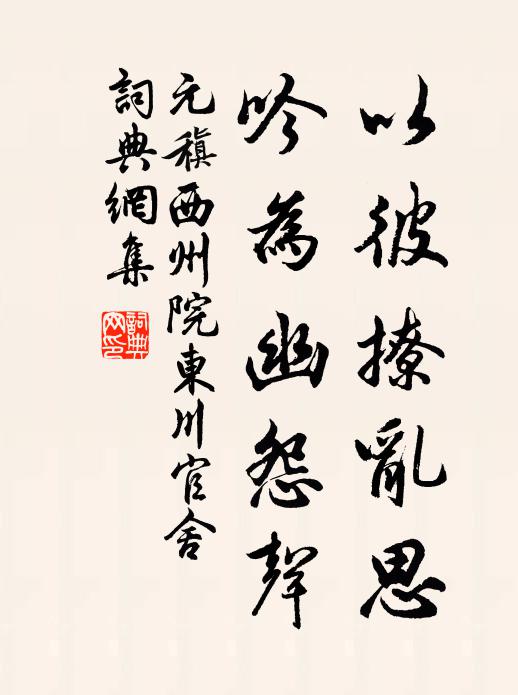 以彼撩亂思
吟為幽怨聲
元稹西州院東川官舍
詞典網集
詞典
网印